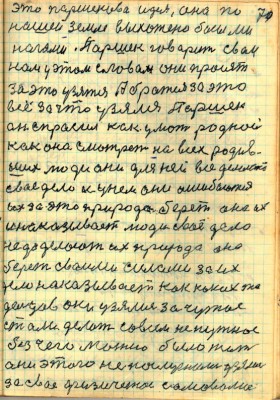 это паршекова идея, она по 79
нашей земле выхожено босыми
ногами. Паршек говорит свам
нам у этом словам они просят
за это узятся Я братся за это
всё за что узялся Паршек
он спрасил как у мот родной
как она смотрет на всех родив
ших люди они для ней всё делают
своё дело к у нем они ошибаются
их за это природа берёт она их
и наказывает люди своё дело
недоделоют их природа она
берёт своими силами за их
дело наказывает как каких то
они узялись за чужое
стали делот совсем не нужное
без чего можно было жот
они этого не узяли
за своё физическое самоволие